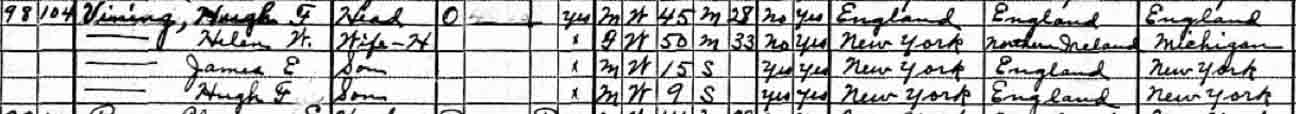 98 104 Vining, Hugh F Head O Yes M W 45 M 28 No Yes England England England
Helen W. Wife-H x F W 50 M 33 No Yes New York Northern Ireland Michigan
James E Son x M W 15 S Yes Yes New York England New York
Hugh F Son x M W 9 S Yes Yes New York England New York